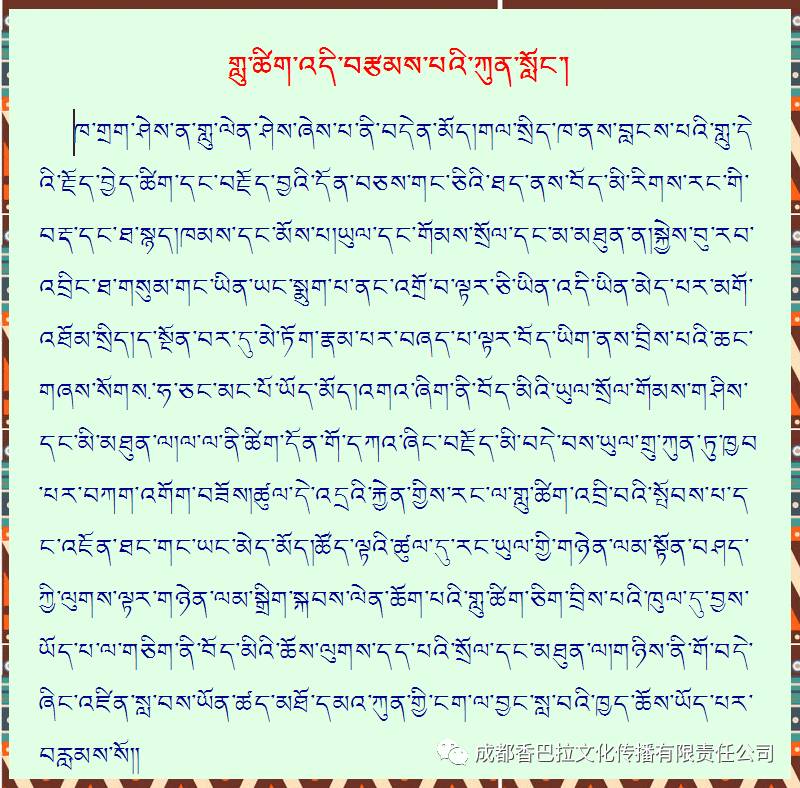 གླུ་ཚིག་འདི་བརྩམས་པའི་ཀུན་སློང་།
ཁ་གྲག་ཤེས་ན་གླུ་ལེན་ཤེས་ཞེས་པ་ནི་བདེན་མོད།གལ་སྲིད་ཁ་ནས་བླངས་པའི་གླུ་དེ
འི་རྗོད་བྱེད་ཚིག་དང་བརྗོད་བྱའི་དོན་བཅས་གང་ཅིའི་ཐད་ནས་བོད་མི་རིགས་རང་གི་
བརྡ་དང་ཐ་སྙད།ཁམས་དང་མོས་པ།ཡུལ་དང་གོམས་སྲོལ་དང་མ་མཐུན་ན།སྐྱེས་བུ་རབ་
འབྲིང་ཐ་གསུམ་གང་ཡིན་ཡང་སྨུག་པ་ནང་འགྲོ་བ་ལྟར་ཅི་ཡིན་འདི་ཡིན་མེད་པར་མགོ་
འཐོམ་སྲིད།ད་སྔོན་བར་དུ་མེ་ཏོག་རྣམ་པར་བཞད་པ་ལྟར་བོད་ཡིག་ནས་བྲིས་པའི་ཆང་
གཞས་སོགས་ཧ་ཅང་མང་པོ་ཡོད་མོད།འགའ་ཞིག་ནི་བོད་མིའི་ཡུལ་སྲོལ་གོམས་གཤིས་
དང་མི་མཐུན་ལ།ལ་ལ་ནི་ཚིག་དོན་གོ་དཀའ་ཞིང་བརྗོད་མི་བདེ་བས་ཡུལ་གྲུ་ཀུན་ཏུ་ཁྱབ
་པར་བཀག་འགོག་བཟོས།ཚུལ་དེ་འདྲའི་རྐྱེན་གྱིས་རང་ལ་གླུ་ཚིག་འབྲི་བའི་སྤོབས་པ་ད
ང་འཇོན་ཐང་གང་ཡང་མེད་མོད།ཚོད་ལྟའི་ཚུལ་དུ་རང་ཡུལ་གྱི་གཉེན་ལམ་སྟོན་བཤད་
ཀྱི་ལུགས་ལྟར་གཉེན་ལམ་སྒྲིག་སྐབས་ལེན་ཆོག་པའི་གླུ་ཚིག་ཅིག་བྲིས་པའི་ཁུལ་དུ་བྱས་
ཡོད་པ་ལ་གཅིག་ནི་བོད་མིའི་ཆོས་ལུགས་དད་པའི་སྲོལ་དང་མཐུན་ལ།གཉིས་ནི་གོ་བདེ་
ཞིང་འཛིན་སླ་བས་ཡོན་ཚད་མཐོ་དམའ་ཀུན་གྱི་ངག་ལ་བྱང་སླ་བའི་ཁྱད་ཆོས་ཡོད་པར་
བརླམས་སོ།།
成都香巴拉文化传播有限责任公司